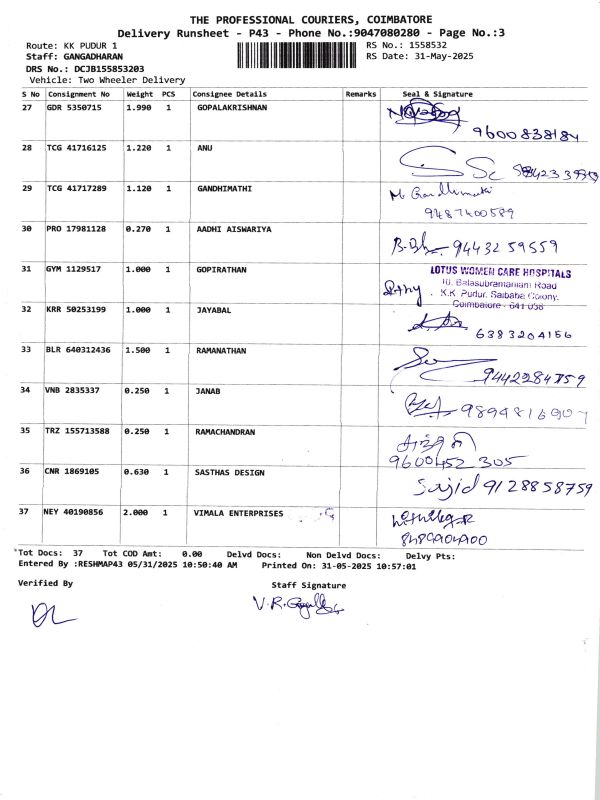 THE PROFESSIONAL COURIERS, COIMBATORE
Delivery Runsheet - P43 - Phone No.:9047080280 - Page No.:3
Route: KK PUDUR 1 RS No.: 1558532
Staff: GANGADHARAN RS Date: 31-May-2025
DRS No.: DCJB155853203
Vehicle: Two Wheeler Delivery
S No Consignment No Weight PCS Consignee Details Remarks Seal & Signature
27 GDR 5350715 1.990 1 GOPALAKRISHNAN
9600838184
28 TCG 41716125 1.220 1 ANU
29 TCG 41717289 1.120 1 GANDHIMATHI M. Gandhimathi
9487400589
30 PRO 17981128 0.270 1 AADHI AISWARIYA
9443259559
31 GYM 1129517 1.000 1 GOPIRATHAN LOTUS WOMEN CARE HOSPITALS
10, Balasubramaniam Road
K.K. Pudur, Saibaba Colony,
Coimbatore - 641 038
32 KRR 50253199 1.000 1 JAYABAL
6383204156
33 BLR 640312436 1.500 1 RAMANATHAN
9442284759
34 VNB 2835337 0.250 1 JANAB
9894816907
35 TRZ 155713588 0.250 1 RAMACHANDRAN
9600452305
36 CNR 1869105 0.630 1 SASTHAS DESIGN
Sajid 9128858759
37 NEY 40190856 2.000 1 VIMALA ENTERPRISES
8489904900
*Tot Docs: 37 Tot COD Amt: 0.00 Delvd Docs: Non Delvd Docs: Delvy Pts:
Entered By :RESHMAP43 05/31/2025 10:50:40 AM Printed On: 31-05-2025 10:57:01
Verified By Staff Signature